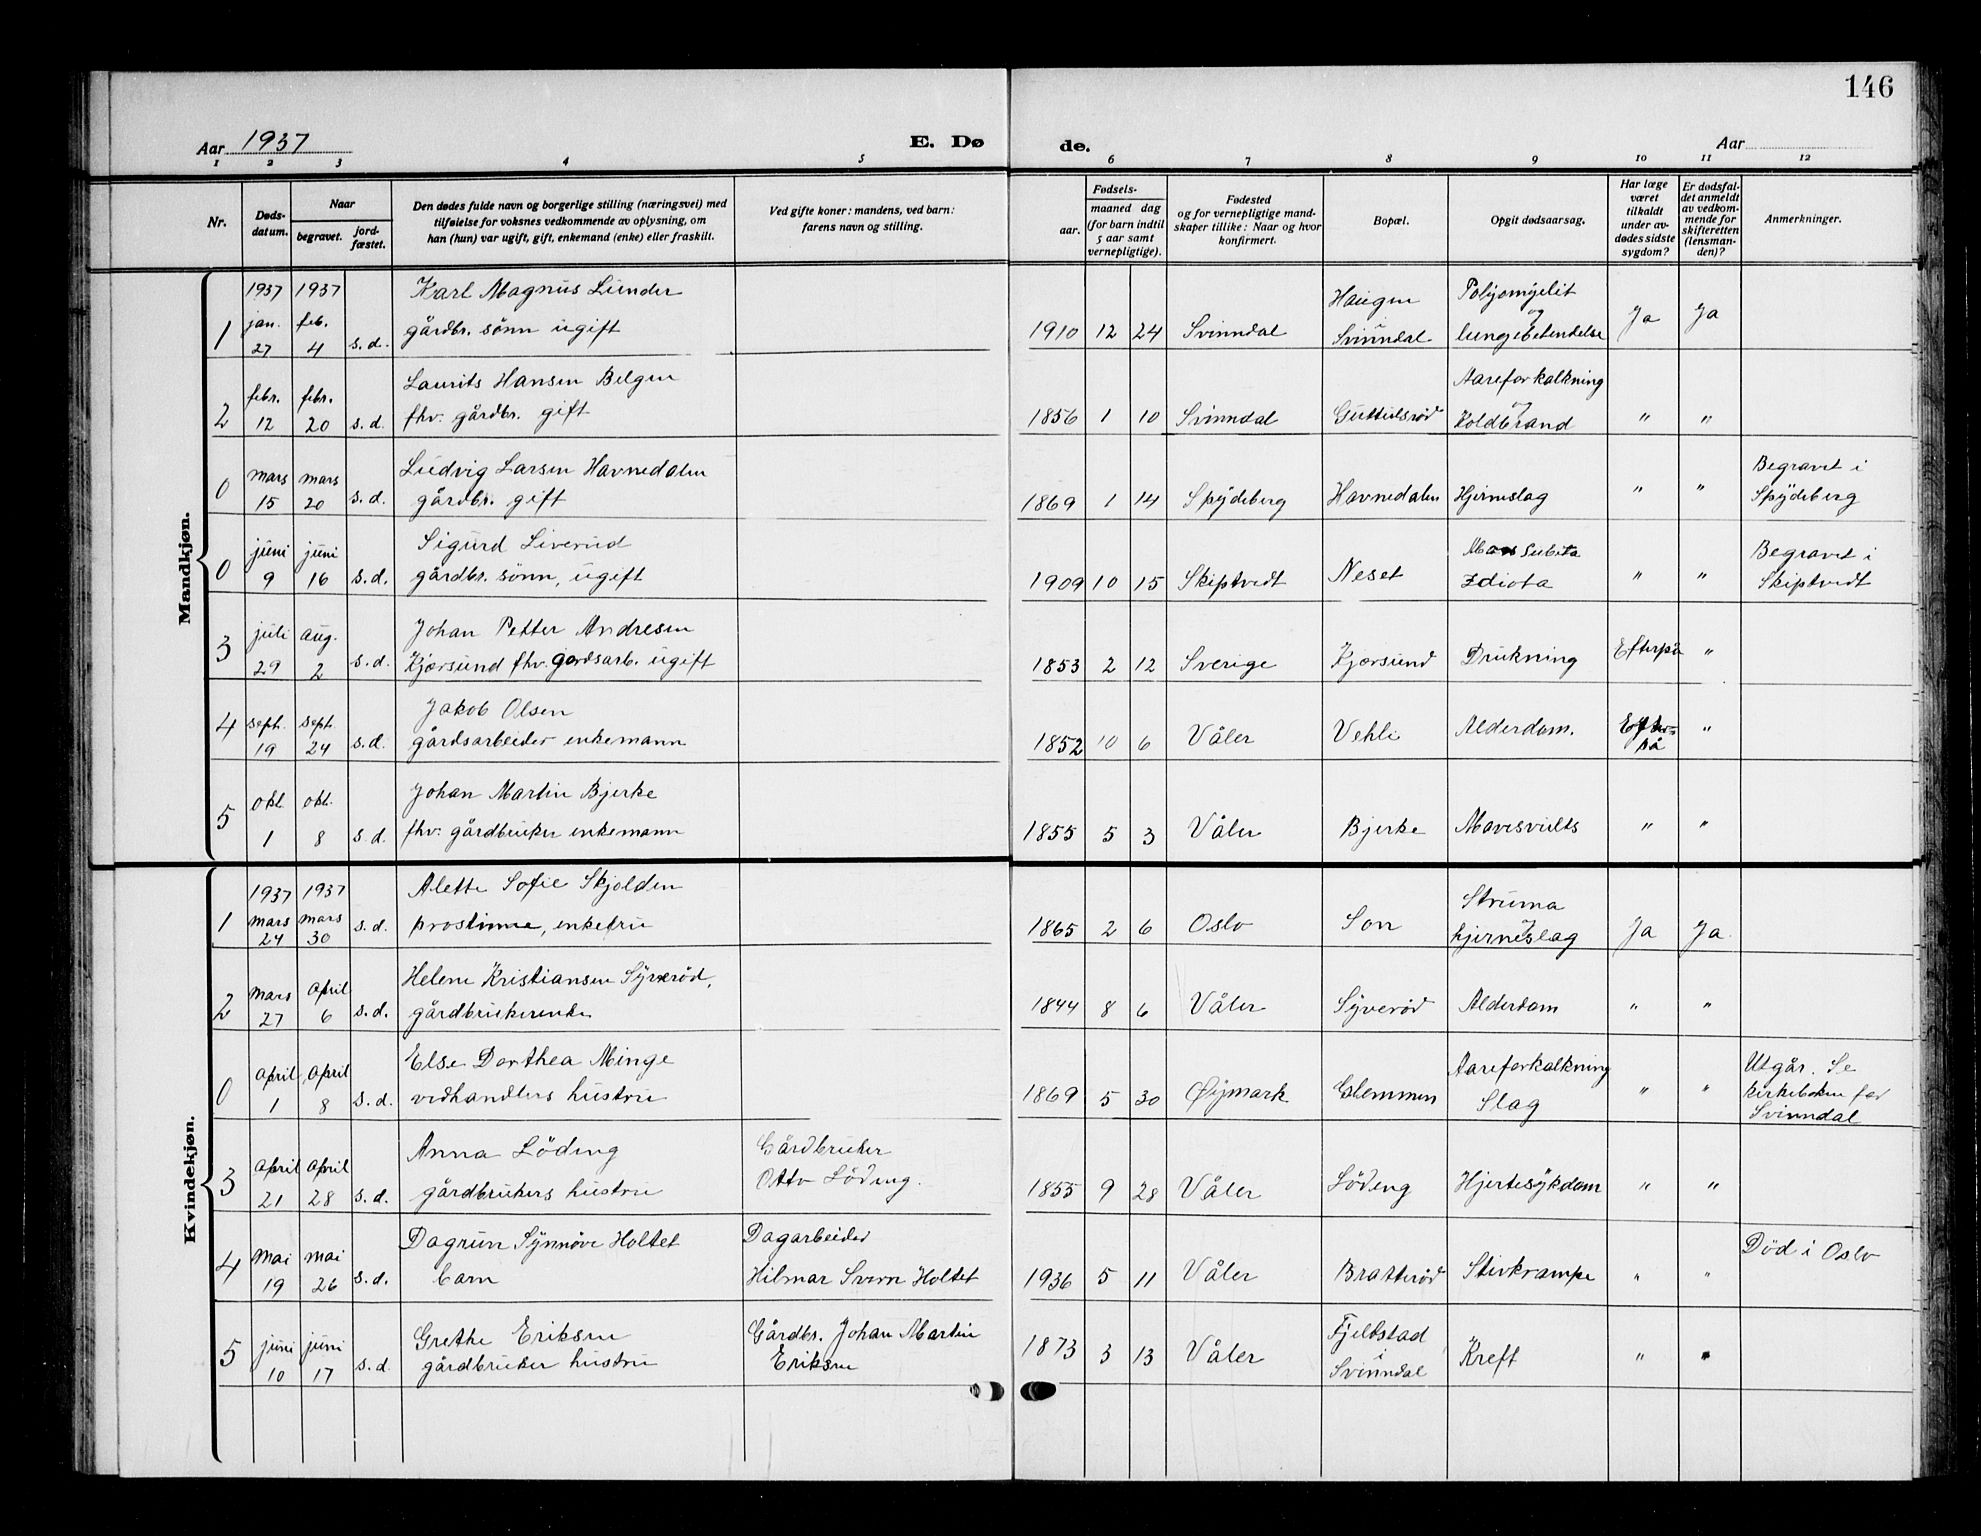 146
Aar 1937
E. Dø
de.
Aar
1 2 3 4 5 6 7 8 9 10 11 12
Nr.
Døds-
datum.
Naar
begravet.
jord-
fæstet.
Den dødes fulde navn og borgerlige stilling (næringsvei) med
tilføielse for voksnes vedkommende av oplysning, om
han (hun) var ugift, gift, enkemand (enke) eller fraskilt.
Ved gifte koner: mandens, ved barn:
farens navn og stilling.
Fødsels-
aar.
maaned dag
(for barn indtil
5 aar samt
vernepligtige).
Fødested
og for vernepligtige mand-
skaper tillike: Naar og hvor
konfirmert.
Bopæl.
Opgit dødsaarsag.
Har læge
været
tilkaldt
under av-
dødes sidste
sygdom?
Er dødsfal-
det anmeldt
av vedkom-
mende for
skifteretten
(lensman-
den)?
Anmerkninger.
Mandkjøn.
1 1937 jan. 27 1937 feb. 4 s.d.
Karl Magnus Lunder
gårdbr. sönn ugift
1910 12 24 Svinndal
Haugen
i
Svinndal
Polyomyelit
og
lungebetendelse
Ja Ja
2 febr. 12 febr. 20 s.d.
Laurits Hansen Belgen
fhv. gårdbr. gift
1856 1 10 Svinndal Guttulsrød
Aareforkalkning
og
Koldbrand
" "
0 mars 15 mars 20 s.d.
Ludvig Larsen Havnedalen
gårdbr. gift
1869 1 14 Spydeberg Havnedalen Hjerneslag " "
Begravet i
Spydeberg
0 juni 9 juni 16 s.d.
Sigurd Liverud
gårdbr. sönn, ugift
1909 10 15 Skiptvedt Neset
Mors Subita
Idiota
" "
Begravet i
Skiptvedt
3 juli 29 aug. 2 s.d.
Johan Petter Andresen
Kjærsund fhv. gårdsarb. ugift
1853 2 12 Sverige Kjærsund Drukning Efterpå "
4 sept. 19 sept. 24 s.d.
Jakob Olsen
gårdsarbeider enkemann
1852 10 6 Våler Vehli Alderdom.
Efter-
på
"
5 okt. 1 okt. 8 s.d.
Johan Martin Bjerke
fhv. gårdbruker enkemann
1855 5 3 Våler Bjerke Mavesvulst " "
Kvindekjøn.
1 1937 mars 24 1937 mars 30 s.d.
Alette Sofie Skjolden
prostinne, enkefru
1865 2 6 Oslo Son
Struma
og
hjerneslag
Ja Ja
2 mars 27 april 6 s.d.
Helene Kristiansen Syverød,
gårdbrukerenke
1844 8 6 Våler Syverød Alderdom " "
0 april 1 april 8 s.d.
Else Dorthea Minge
vedhandlers hustru
1869 5 30 Øymark Glemmen
Aareforkalkning
Slag
" "
Utgår. Se
kirkeboken for
Svinndal
3 april 21 april 28 s.d.
Anna Löding
gårdbrukers hustru
Gårdbruker
Otto Löding.
1855 9 28 Våler Lödeng Hjertesykdom " "
4 mai 19 mai 26 s.d.
Dagrun Synnöve Holtet
barn
Dagarbeider
Hilmar Svern Holtet
1936 5 11 Våler Bratterød Stivkrampe " "
Död i Oslo
5 juni 10 juni 17 s.d.
Grethe Eriksen
gårdbruker hustru
Gårdbr. Johan Martin
Eriksen
1873 3 13 Våler
Fjelbstad
i
Svinndal
Kreft " "